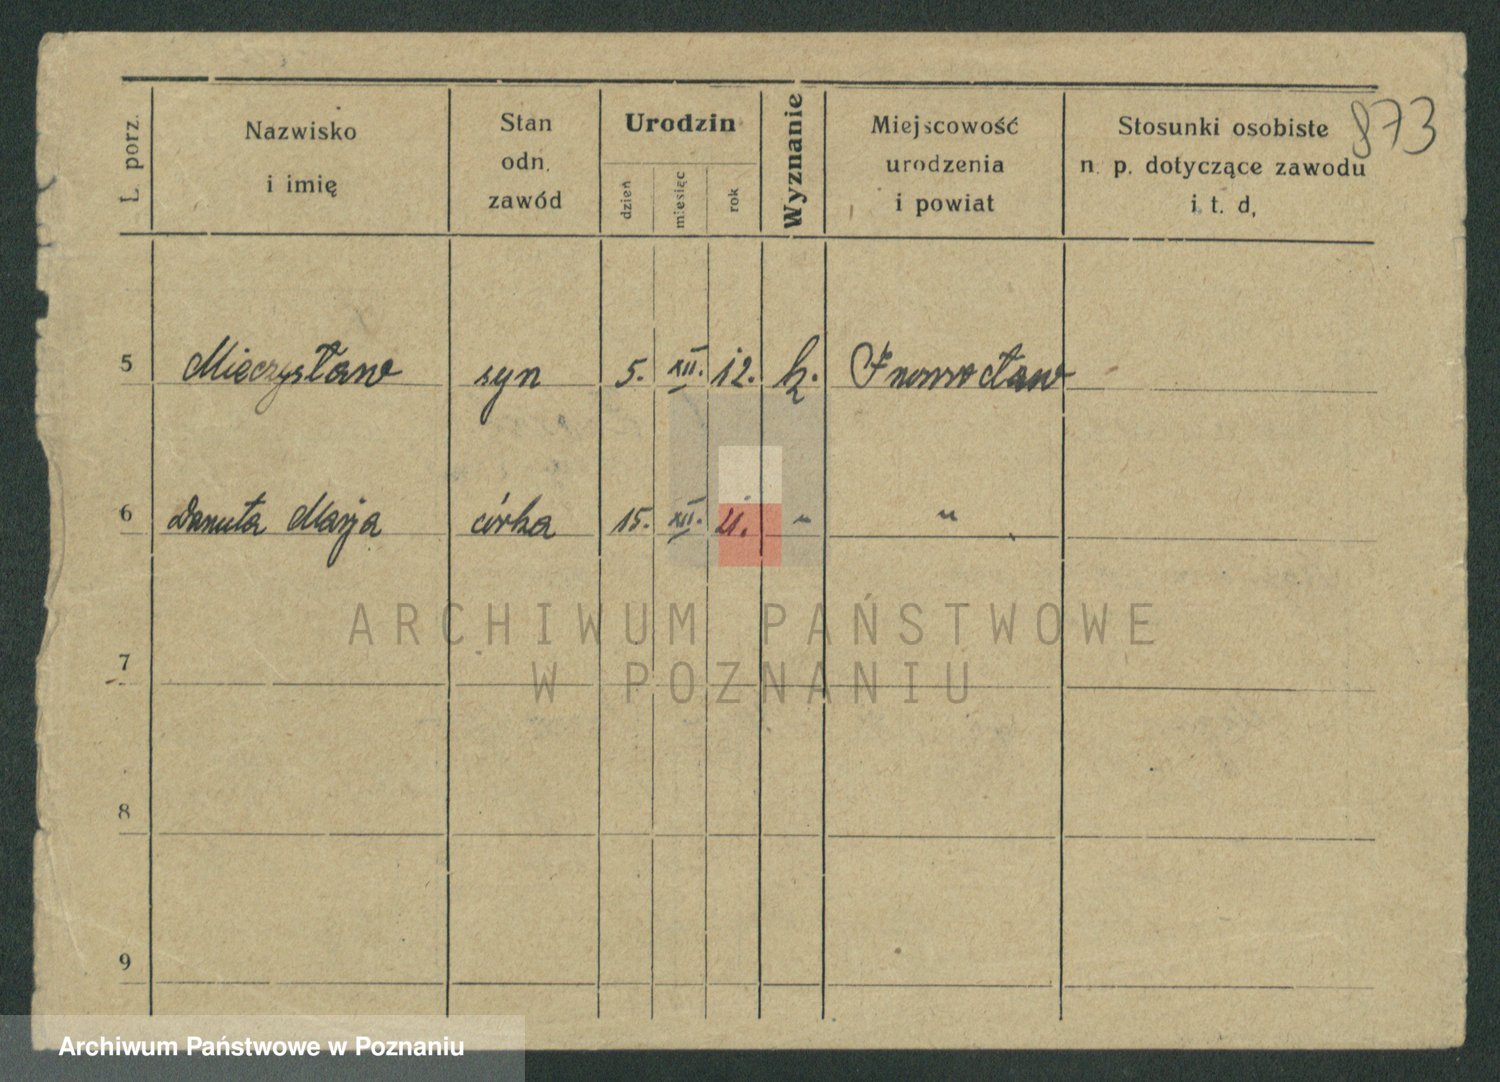 873
L. porz.
Nazwisko
i imię
Stan
odn.
zawód
Urodzin
dzień
miesiąc
rok
Wyznanie
Miejscowość
urodzenia
i powiat
Stosunki osobiste
n. p. dotyczące zawodu
i. t. d.
5 Mieczysław syn 5. XII. 12. k. Inowrocław
6 Danuta Marja córka 15. XII. 21. " "
ARCHIWUM PAŃSTWOWE
W POZNANIU
7
8
9
Archiwum Państwowe w Poznaniu